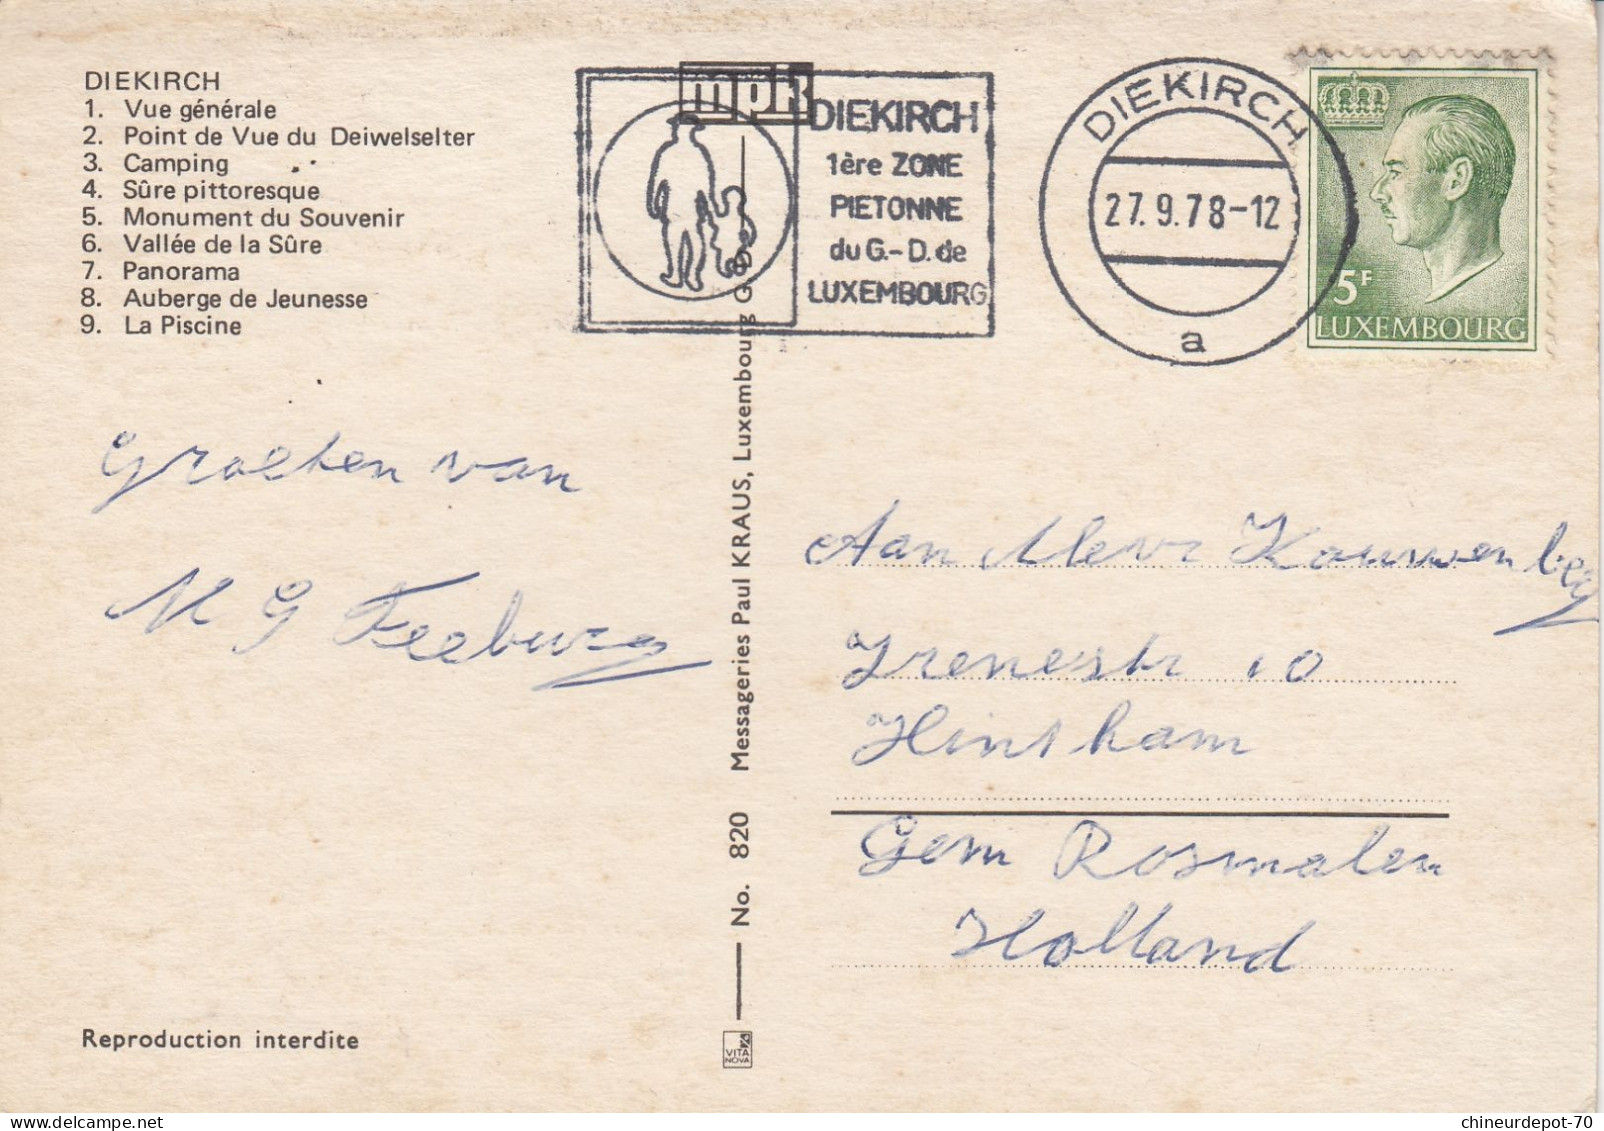 DIEKIRCH
1. Vue générale
2. Point de Vue du Deiwelselter
3. Camping
4. Sûre pittoresque
5. Monument du Souvenir
6. Vallée de la Sûre
7. Panorama
8. Auberge de Jeunesse
9. La Piscine
mpk
DIEKIRCH
1ère ZONE
PIETONNE
du G.-D. de
LUXEMBOURG
DIEKIRCH
27.9.78-12
a
5F
LUXEMBOURG
Groeten van
M G Feeburg
No. 820 Messageries Paul KRAUS, Luxembourg G.D.
Aan Mevr Kouwenberg
Irenestr 10
Hintham
Gem Rosmalen
Holland
Reproduction interdite
VITA
NOVA
chineurdepot-70